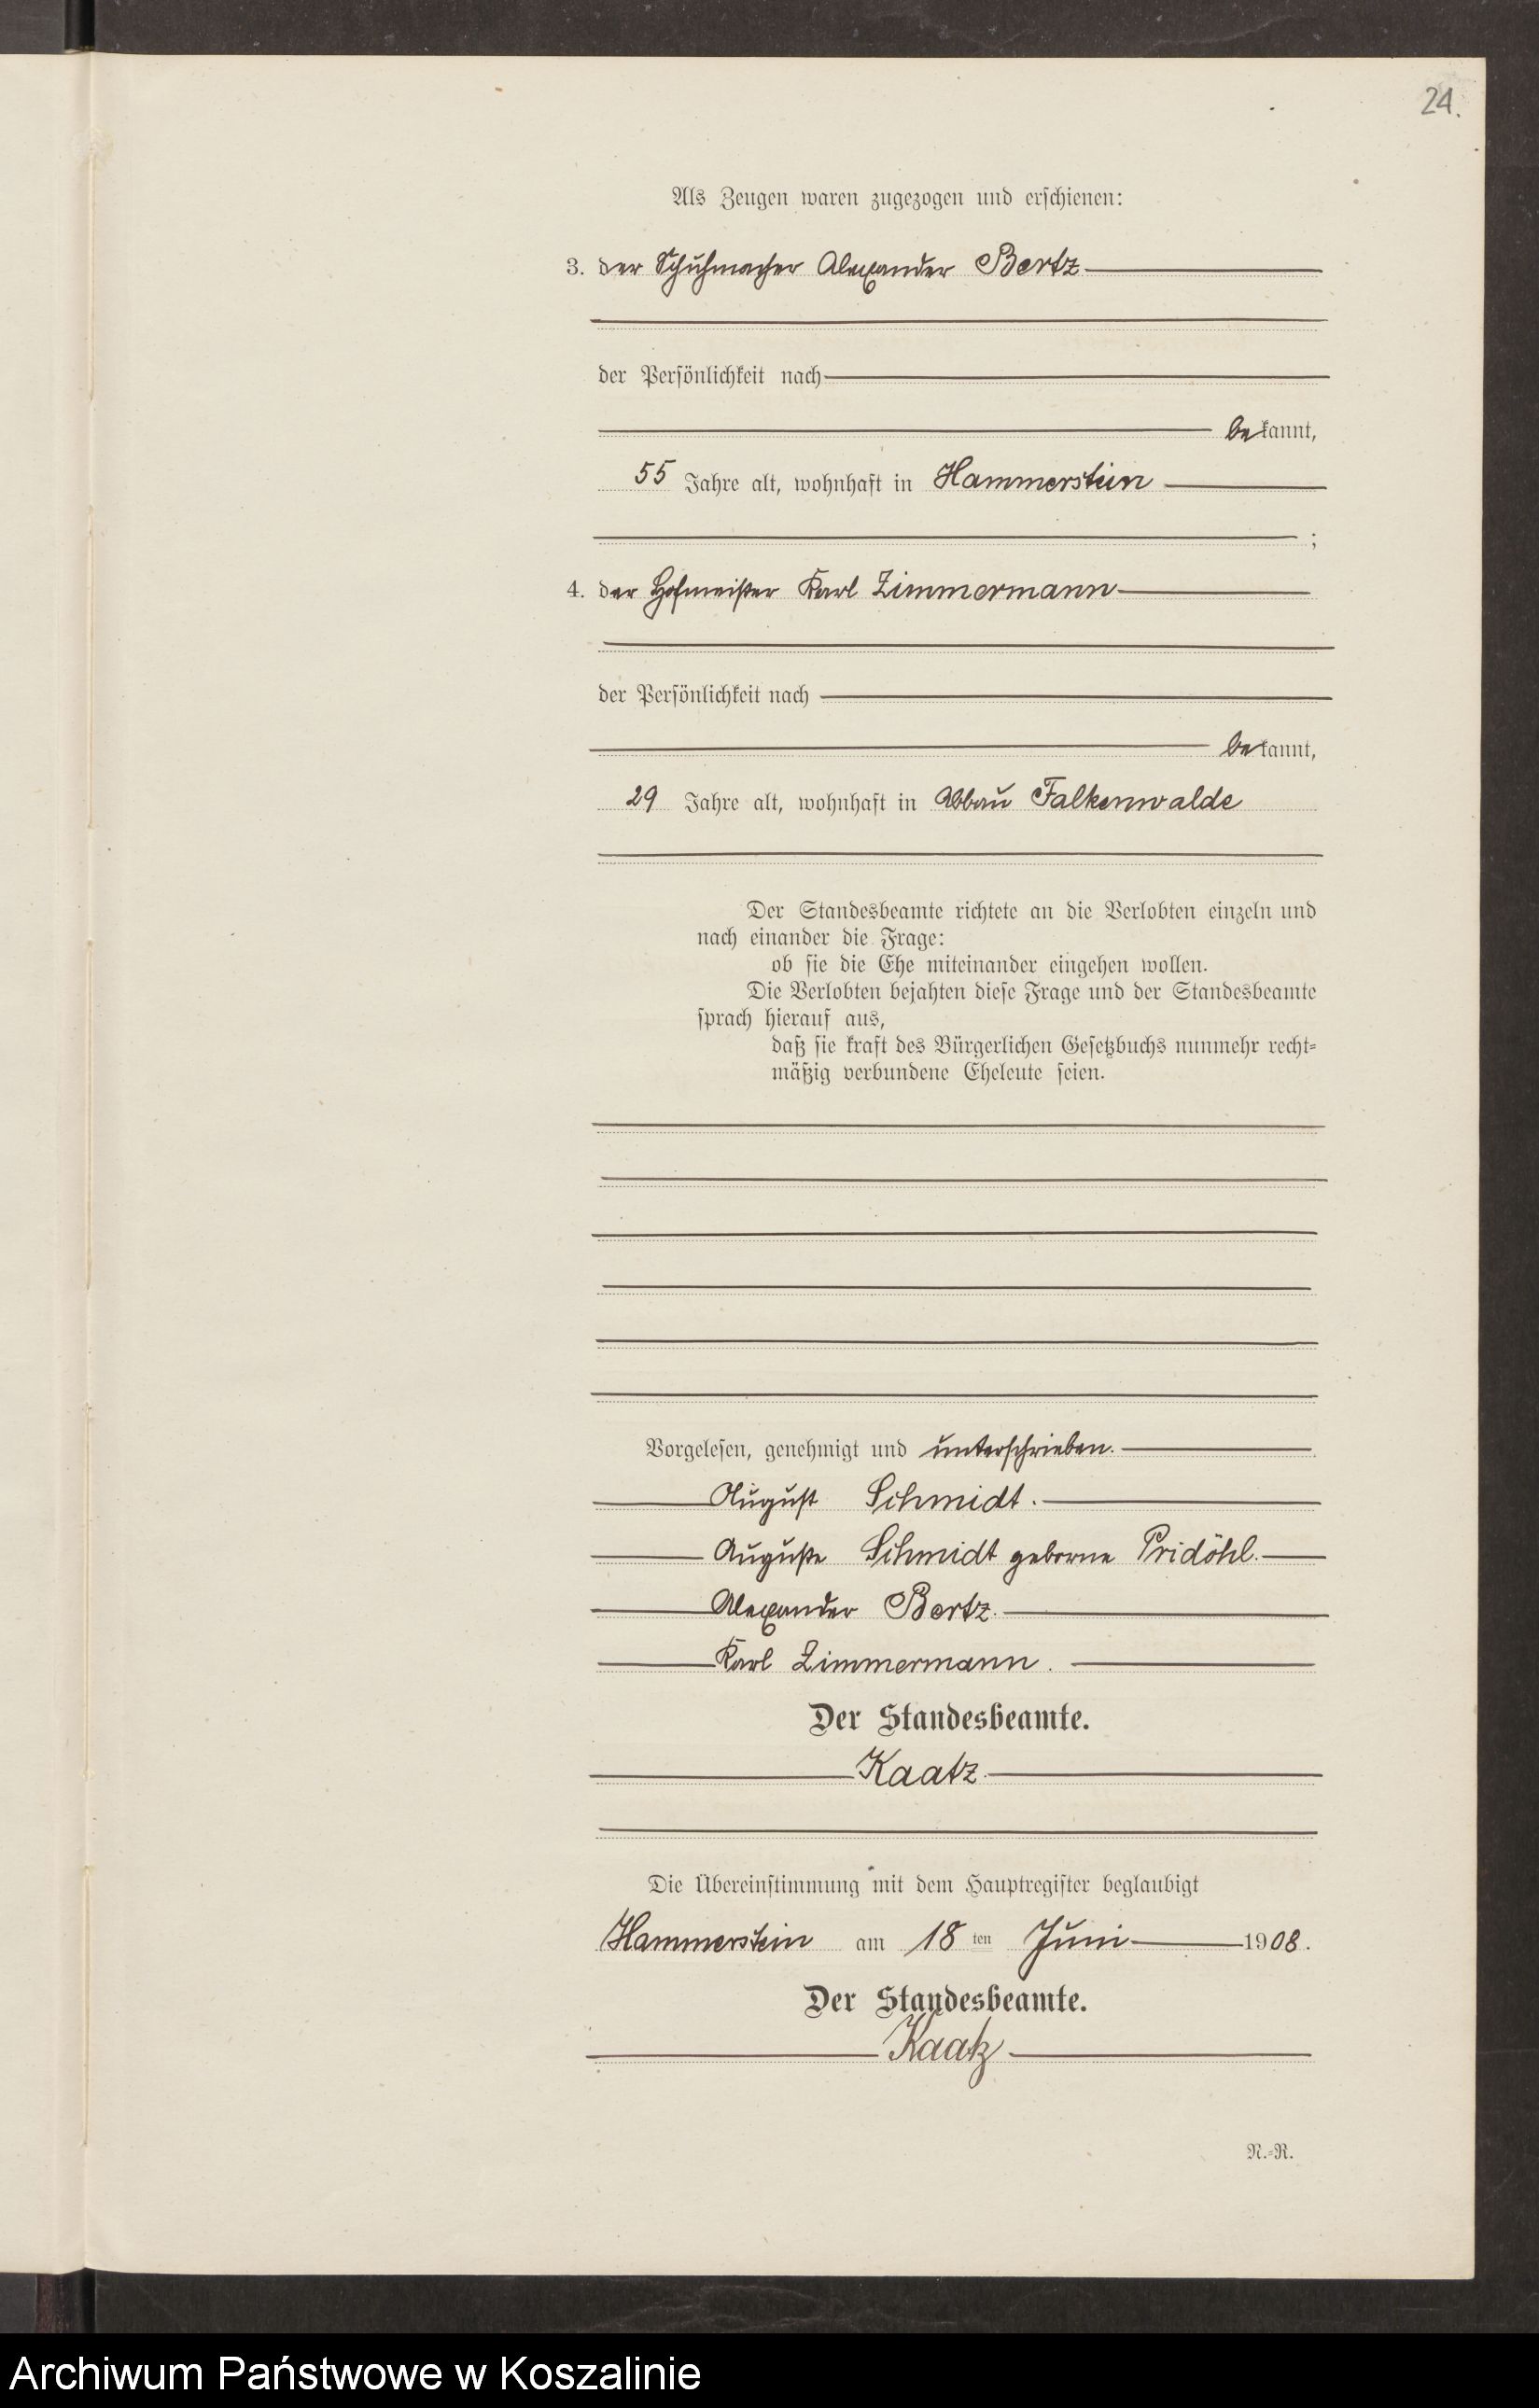 24.
Als Zeugen waren zugezogen und erschienen:
3. der Schuhmacher Alexander Bertz
der Persönlichkeit nach
bekannt,
55 Jahre alt, wohnhaft in Hammerstein
;
4. der Hofmeister Karl Zimmermann
der Persönlichkeit nach
bekannt,
29 Jahre alt, wohnhaft in Abbau Falkenwalde
Der Standesbeamte richtete an die Verlobten einzeln und
nach einander die Frage:
ob sie die Ehe miteinander eingehen wollen.
Die Verlobten bejahten diese Frage und der Standesbeamte
sprach hierauf aus,
daß sie kraft des Bürgerlichen Gesetzbuchs nunmehr recht-
mäßig verbundene Eheleute seien.
Vorgelesen, genehmigt und unterschrieben.
August Schmidt.
Auguste Schmidt geborne Pridöhl.
Alexander Bertz.
Karl Zimmermann.
Der Standesbeamte.
Kaatz.
Die Übereinstimmung mit dem Hauptregister beglaubigt
Hammerstein am 18 ten Juni 1908.
Der Standesbeamte.
Kaatz
N.-R.
Archiwum Państwowe w Koszalinie